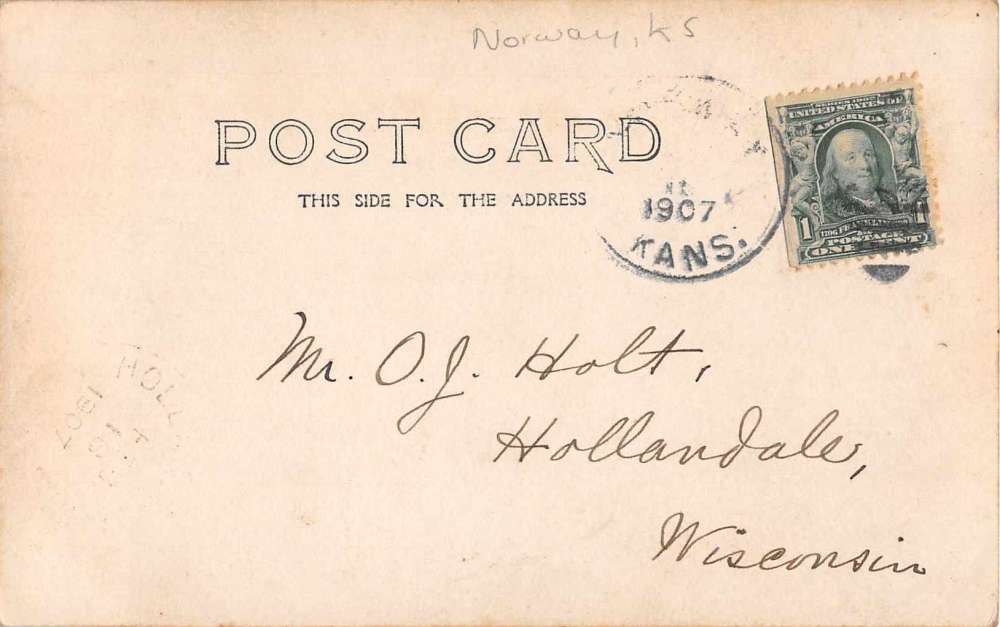 Norway, KS
POST CARD
THIS SIDE FOR THE ADDRESS
1907
KANS.
SERIES 1902
UNITED STATES OF
AMERICA
1
POSTAGE
ONE CENT
Mr. O.J. Holt,
Hollandale,
Wisconsin
HOLL
1907